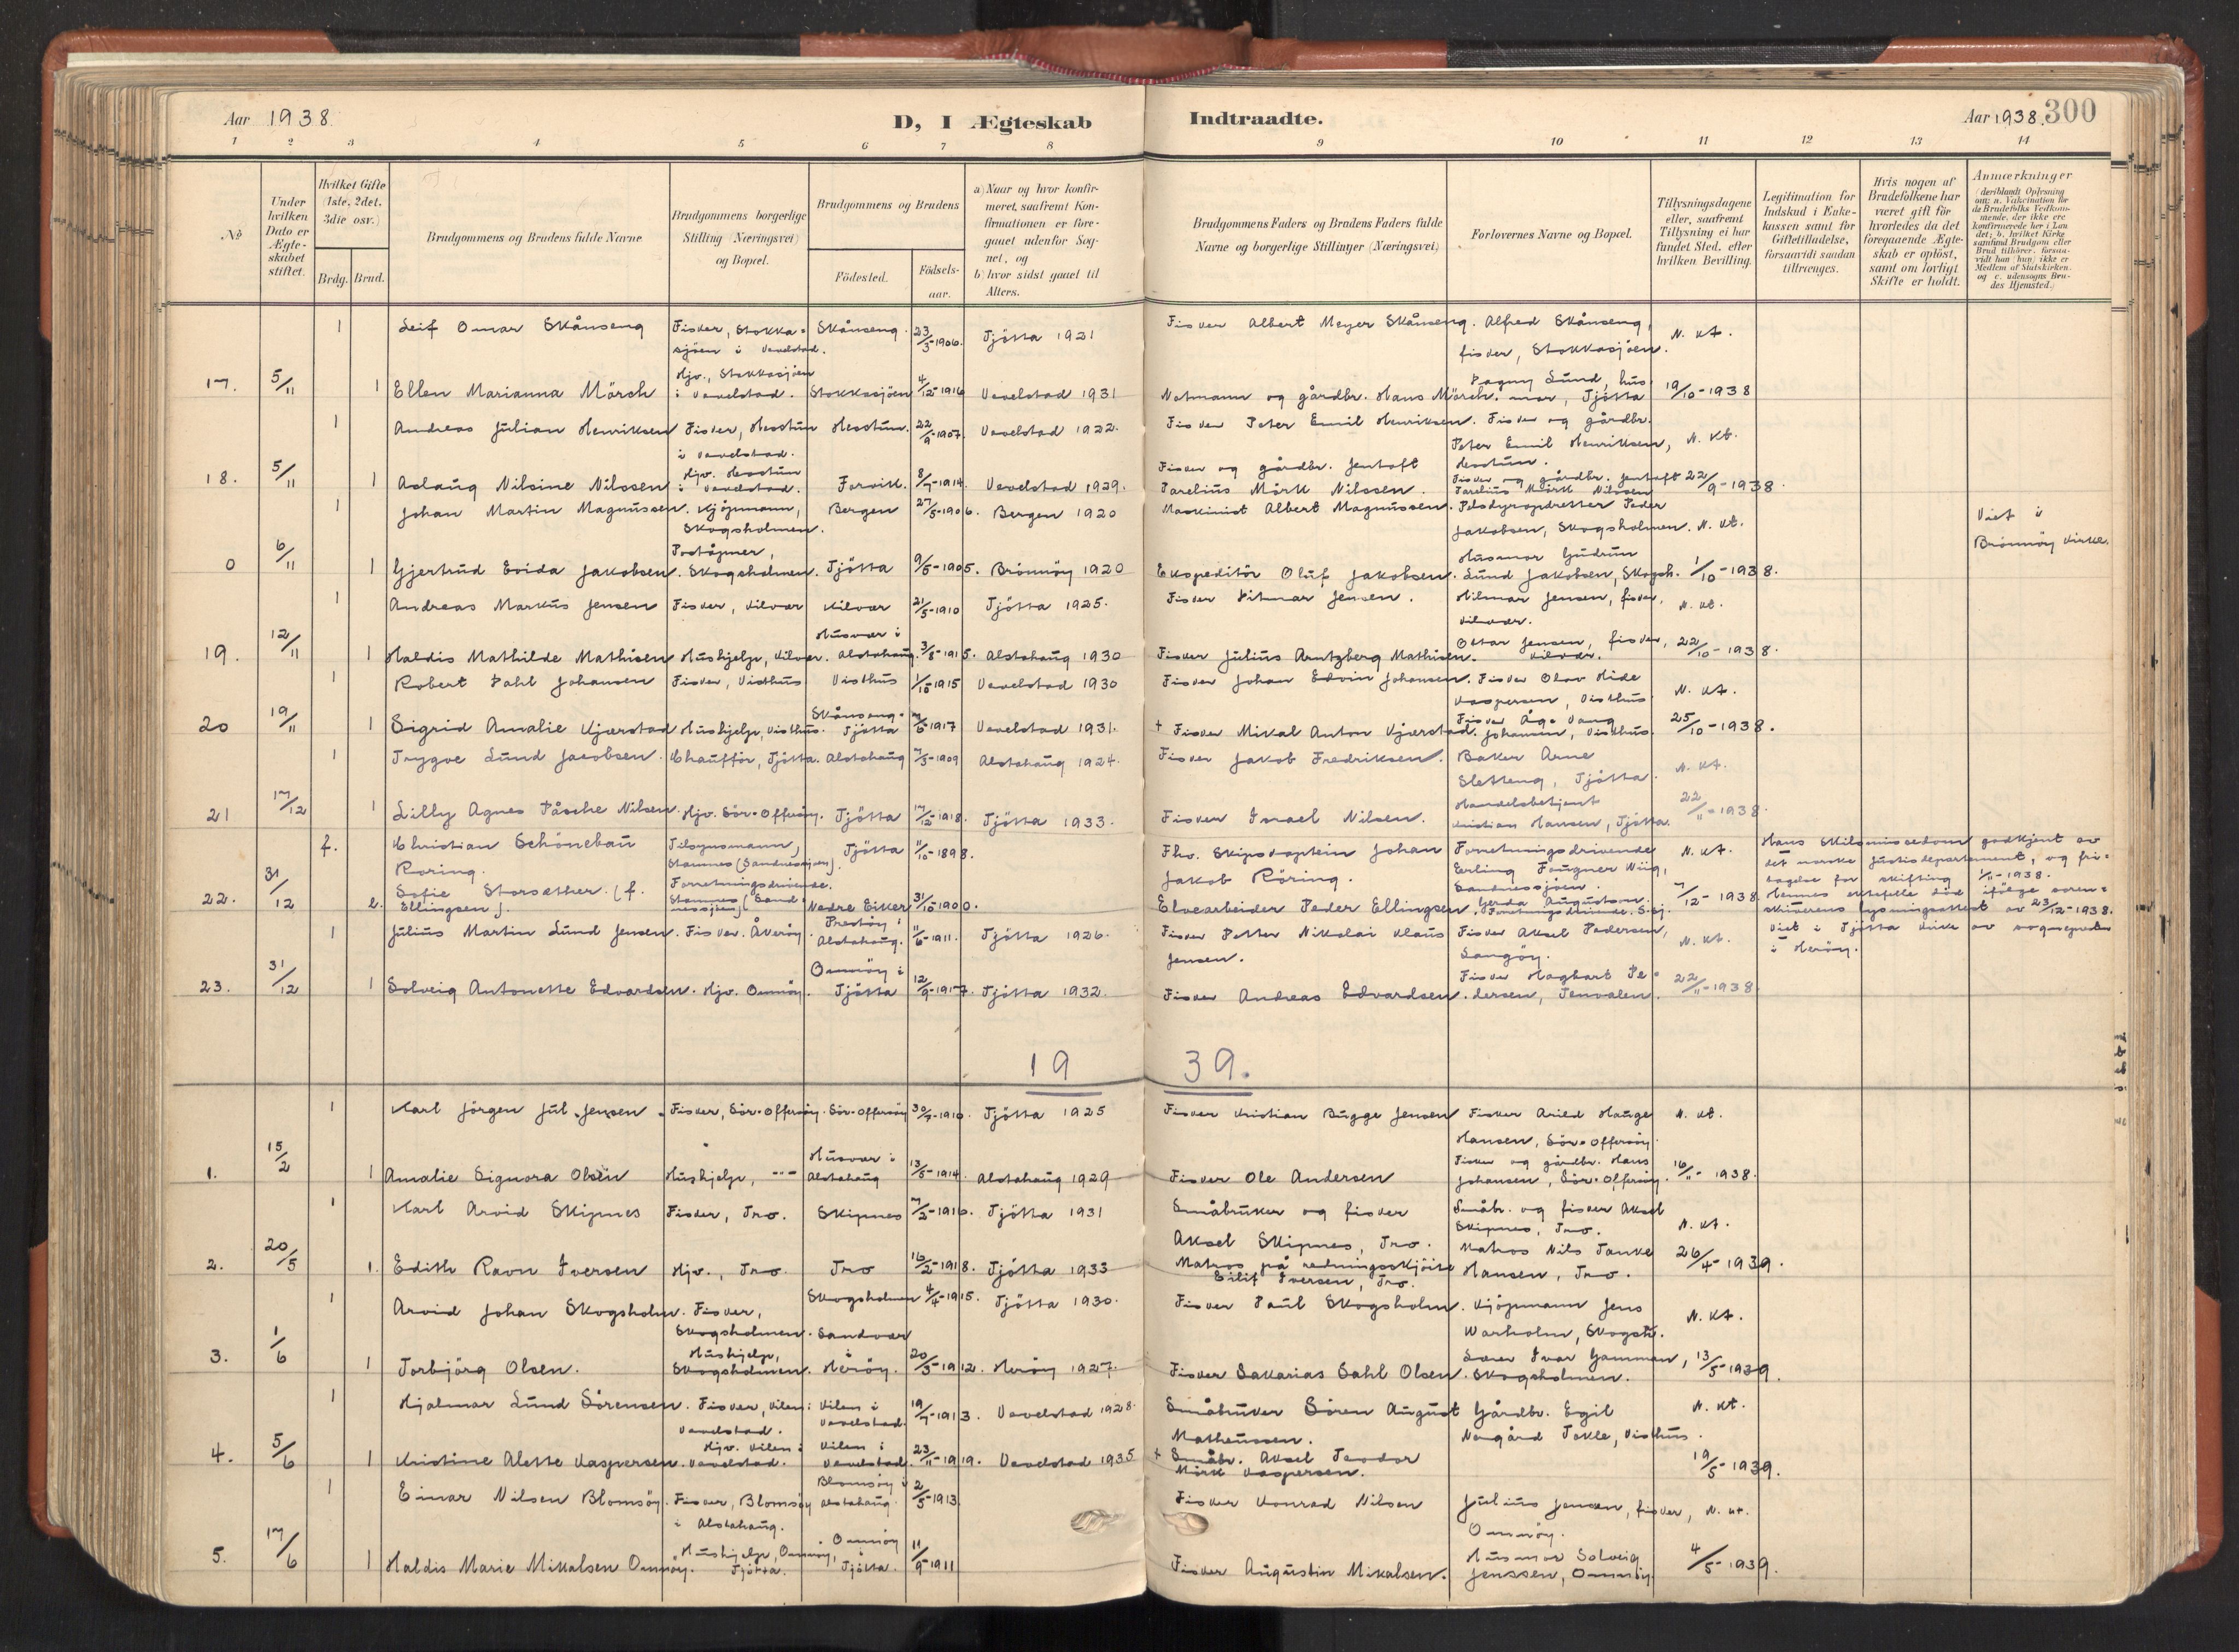 Aar 1938. D, I Ægteskab Indtraadte. Aar 1938. 300
1 2 3 4 5 6 7 8 9 10 11 12 13 14
№
Under hvilken Dato er Ægteskabet stiftet.
Hvilket Gifte (1ste, 2det, 3die osv.)
Brdg. Brud.
Brudgommens og Brudens fulde Navne
Brudgommens borgerlige Stilling (Næringsvei) og Bopæl.
Brudgommens og Brudens
Födested.
Födsels-aar.
a) Naar og hvor konfirmeret, saafremt Konfirmationen er foregaaet udenfor Sognet, og
b) hvor sidst gaaet til Alters.
Brudgommens Faders og Brudens Faders fulde Navne og borgerlige Stillinger (Næringsvei)
Forlovernes Navne og Bopæl.
Tillysningsdagene eller, saafremt Tillysning ei har fundet Sted, efter hvilken Bevilling.
Legitimation for Indskud i Enkekassen samt for Giftetilladelse, forsaavidt saadan tiltrænges.
Hvis nogen af Brudefolkene har været gift för hvorledes da det foregaaende Ægteskab er oplöst, samt om lovligt Skifte er holdt.
Anmærkninger (deriblandt Oplysning om: a. Vaccination for de Brudefolks Vedkommende, der ikke ere konfirmerede her i Landet; b. hvilket Kirkesamfund Brudgom eller Brud tilhörer, forsaavidt han (hun) ikke er Medlem af Statskirken, og c. udensogns Brudes Hjemsted.)
1 Leif Omar Skånseng Fisker, Stokkasjöen i Vevelstad. Skånseng. 23/3-1906. Tjötta 1921 Fisker Albert Meyer Skånseng. Alfred Skånseng, fisker, Stokkasjöen. N. kt.
17. 5/11 1 Ellen Marianna Mörch Hjv., Stokkasjöen i Vevelstad. Stokkasjöen 4/12-1916 Vevelstad 1931 Notmann og gårdbr. Hans Mörch. Dagny Lund, husmor, Tjötta 19/10-1938
1 Andreas Julian Henriksen Fisker, Hesstun i Vevelstad. Hesstun. 22/9-1907. Vevelstad 1922. Fisker Peter Emil Henriksen. Fisker og gårdbr. Peter Emil Henriksen, Hesstun. N. kt.
18. 5/11 1 Aslaug Nilsine Nilssen Hjv. Hesstun i Vevelstad. Forvik. 8/7-1914. Vevelstad 1929. Fisker og gårdbr. Jentoft Parelius Mörk Nilssen. Fisker og gårdbr. Jentoft Parelius Mörk Nilssen 22/9-1938.
1 Johan Martin Magnussen. Kjöpmann, Skogsholmen. Bergen 27/5-1906. Bergen 1920 Maskinist Albert Magnussen. Pelsdyropdretter Peder Jakobsen, Skogsholmen. N. kt. Viet i Brönnöy kirke.
0 6/11 1 Gjertrud Evida Jakobsen. Poståpner, Skogsholmen. Tjötta 9/5-1905. Brönnöy 1920 Ekspeditör Oluf Jakobsen. Husmor Gudrun Lund Jakobsen, Skogsh. 1/10-1938.
1 Andreas Markus Jensen Fisker, Kilvær Kilvær 21/5-1910 Tjötta 1925. Fisker Hilmar Jensen. Hilmar Jensen, fisker, Kilvær. N. kt.
19. 12/11 1 Haldis Mathilde Mathisen Hushjelp, Kilvær. Husvær i Alstahaug. 3/8-1915. Alstahaug 1930 Fisker Julius Arntzberg Mathisen. Ottar Jensen, fisker, Kilvær. 22/10-1938.
1 Robert Dahl Johansen Fisker, Visthus Visthus 1/10-1915 Vevelstad 1930 Fisker Johan Edvin Johansen. Fisker Olav Hide Kaspersen, Visthus N. kt.
20 19/11 1 Sigrid Amalie Kjærstad Hushjelp, Visthus. Skånseng. Tjötta 7/6-1917 Vevelstad 1931. + Fisker Mikal Anton Kjærstad. Fisker Åge Vang Johansen, Visthus. 25/10-1938.
1 Trygve Lund Jacobsen. Chaufför, Tjötta. Alstahaug 7/5-1909 Alstahaug 1924. Fisker Jakob Fredriksen. Baker Arne Sletteng, Tjötta. N. kt.
21 17/12 1 Lilly Agnes Påsche Nilsen. Hjv. Sör-Offersöy. Tjötta 17/12-1918. Tjötta 1933. Fisker Israel Nilsen. Handelsbetjent Kristian Hansen, Tjötta. 22/11-1938.
f. Christian Schönebau Roring. Tilsynsmann, Stamnes (Sandnessjöen). Tjötta 11/10-1898. Fhv. Skipskaptein Johan Jakob Röring. Forretningsdrivende Erling Fougner Wiig, Sandnessjöen. N. kt. Hans skilsmissedom godkjent av det norske justisdepartement, og fritagelse for skifting 1/11-1938.
22. 31/12 2. Sofie Storsæther. (f. Ellingsen). Forretningsdrivende. Stamnes (Sandnessjöen) Nedre Eiker 31/10-1900. Elvearbeider Peder Ellingsen. Gerda Augustson. Forretningsdrivende. S.sj. 7/12-1938 Hennes ektefelle död ifölge sorenskriverens lysningsattest av 23/12-1938. Viet i Tjötta kirke av sognepresten i Heröy.
1 Julius Martin Lund Jensen. Fisker. Åkeröy Prestöy i Alstahaug. 11/6-1911. Tjötta 1926. Fisker Petter Nikolai Klaus Jensen. Fisker Aksel Pedersen, Langöy. N. kt.
23. 31/12 1 Solveig Antonette Edvardsen. Hjv. Ommöy. Ommöy i Tjötta 12/9-1917. Tjötta 1932. Fisker Andreas Edvardsen. Fisker Hagbart Pedersen, Tenvalen. 22/11-1938
1939.
1 Karl Jörgen Jul Jensen. Fisker, Sör-Offersöy. Sör-Offersöy 30/7-1910. Tjötta 1925 Fisker Kristian Bugge Jensen Fisker Arild Hauge Hansen, Sör-Offersöy. N. kt.
1. 15/2 1 Amalie Signora Olsen Hushjelp, -"- Husvær i Alstahaug 13/5-1914. Alstahaug 1929 Fisker Ole Andersen Fisker og gårdbr. Hans Johansen, Sör-Offersöy. 16/11-1938.
1 Karl Arvid Skipnes Fisker, Tro. Skipnes 7/2-1916. Tjötta 1931 Småbruker og fisker Aksel Skipnes, Tro. Småbr. og fisker Aksel Skipnes, Tro. N. kt.
2. 20/5 1. Edith Ravn Iversen Hjv., Tro. Tro 16/2-1918. Tjötta 1933 Matros på redningsskjöite Eilif Iversen, Tro. Matros Nils Tanke Hansen, Tro. 26/4-1939.
1 Arvid Johan Skogsholm. Fisker, Skogsholmen. Skogsholmen 4/4-1915. Tjötta 1930. Fisker Paul Skogsholm. Kjöpmann Jens Warholm, Skogsh. N. kt.
3. 1/6 1 Torbjörg Olsen. Hushjelp, Skogsholmen. Sandvær i Heröy. 20/3-1912. Heröy 1927. Fisker Sakarias Sahl Olsen. Lærer Ivar Gamman, Skogsholmen. 13/5-1939.
1 Hjalmar Lund Sörensen. Fisker, Vilen i Vevelstad. Vilen i Vevelstad. 19/7-1913. Vevelstad 1928. Småbruker Sören August Matheussen. Gårdbr. Egil Norgård Tokle, Visthus. N. kt.
4. 5/6 1 Kristine Alette Kaspersen. Hjv. Vilen i Vevelstad. Vilen i Vevelstad. 23/11-1919. Vevelstad 1935 + Småbr. Aksel Teodor Mörk Kaspersen. 19/5-1939.
1 Einar Nilsen Blomsöy. Fisker, Blomsöy i Alstahaug. Blomsöy i Alstahaug. 2/5-1913. Fisker Konrad Nilsen Julius Jensen, fisker, Ommöy. N. kt.
5. 17/6 1 Haldis Marie Mikalsen Ommöy. Hushjelp, Ommöy, Tjötta. Ommöy i Tjötta. 11/9-1911 Fisker Augustin Mikalsen. Husmor Solveig Jenssen, Ommöy. 4/5-1939.